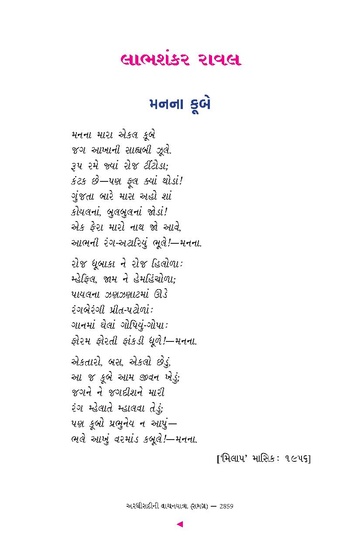 લાભશંકર રાવલ
મનના કૂબે
મનના મારા એકલ કૂબે
જગ આખાની સાહ્યબી ઝૂલે.
રૂપ રમે જ્યાં રોજ ટીંટોડા;
કંટક છે—પણ ફૂલ ક્યાં થોડાં!
ગુંજતા બારે માસ અહો શાં
કોયલનાં, બુલબુલનાં જોડાં!
એક ફેરા મારો નાથ જો આવે,
આભની રંગ-અટારિયું ભૂલે!—મનના.
રોજ ધુબાકા ને રોજ હિલોળા:
મ્હેફિલ, જામ ને હેમહિંચોળા;
પાયલના ઝણઝણાટમાં ઊડે
રંગબેરંગી પ્રીત-પટોળાં:
ગાનમાં ઘેલાં ગોપિયું-ગોપા:
ફોરમ ફોરતી ફાંકડી ધૂળે!—મનના.
એકતારો, બસ, એકલો છેડું,
આ જ કૂબે આમ જીવન ખેડું;
જગને ને જગદીશને મારી
રંગ મ્હેલાતે મ્હાલવા તેડું;
પણ કૂબો પ્રભુનેય ન આપું—
ભલે આખું વરમાંડ કબૂલે!—મનના.
['મિલાપ' માસિક: ૧૯૫૬]
અરધીસદીની વાચનયાત્રા (સમગ્ર) — 2859